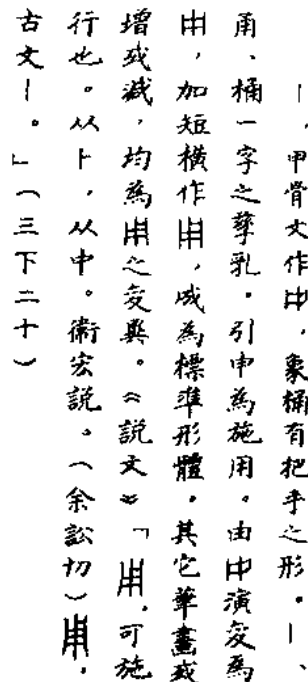 丨，甲骨文作，象桶有把手之形。丨、
甬、桶一字之孳乳。引申為施用。由演變為
，加短橫作，成為標準形體。其它筆畫或
增或減，均為之變異。《說文》「，可施
行也。从卜，从中。衛宏說。（余訟切），
古文丨。」（三下二十）